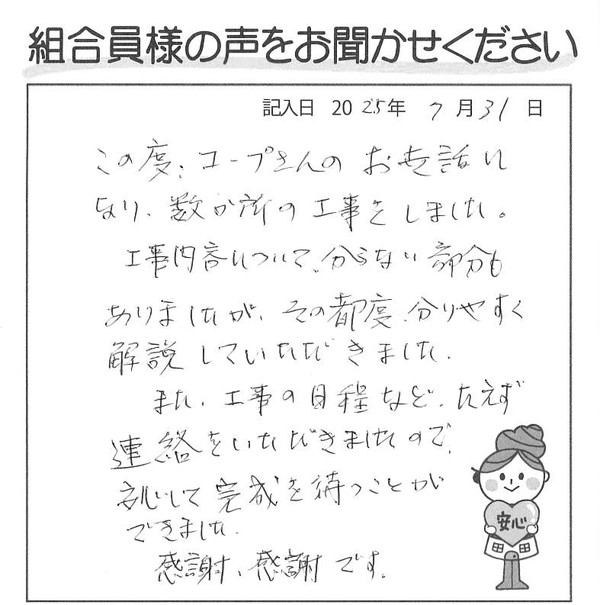 組合員様の声をお聞かせください
記入日 2025年 7月31日
この度、コープさんのお世話に
なり、数か所の工事をしました。
工事内容について、分らない部分も
ありましたが、その都度、分りやすく
解説していただきました。
また、工事の日程など、たえず
連絡をいただきましたので、
安心して完成を待つことが
できました。
感謝、感謝です。
安心